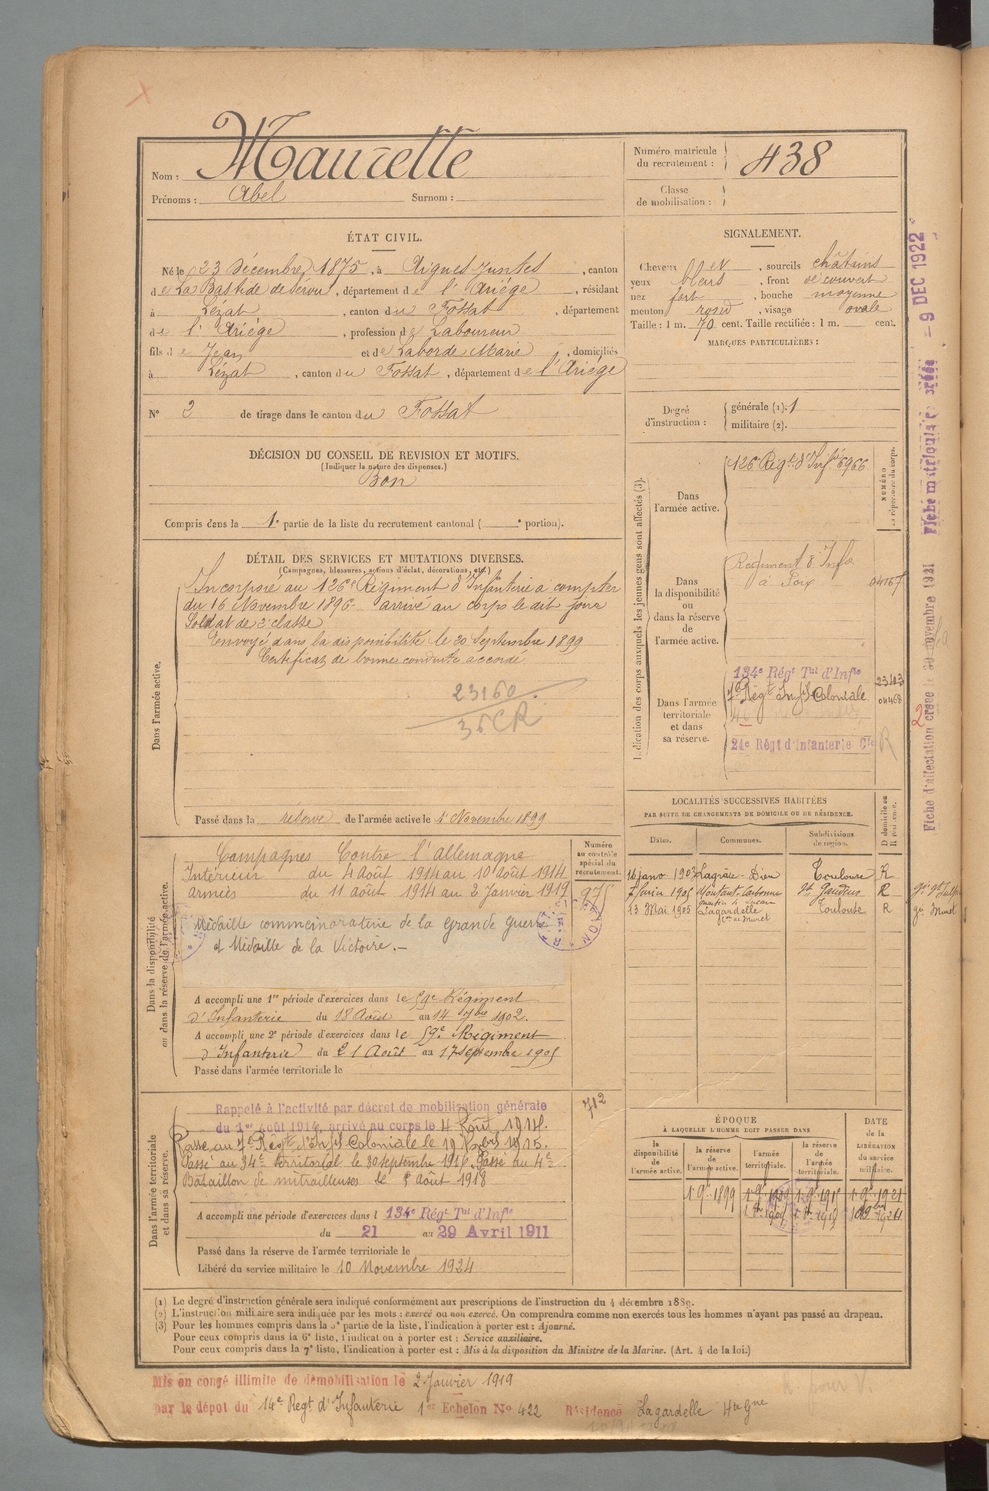 Nom : Maurette
Prénoms : Abel Surnom :
Numéro matricule du recrutement : 438
Classe de mobilisation :
ÉTAT CIVIL.
Né le 23 Décembre 1875, à Aigues Juntes, canton
de La Bastide de Serou, département de l'Ariége, résidant
à Lézat, canton du Fossat, département
de l'Ariége, profession de Laboureur
fils de Jean et de Laborde Marie, domiciliés
à Lézat, canton du Fossat, département de l'Ariége
N° 2 de tirage dans le canton du Fossat
SIGNALEMENT.
Cheveux et sourcils châtains
yeux bleus, front découvert
nez fort, bouche moyenne
menton rond, visage ovale
Taille : 1 m. 70 cent. Taille rectifiée : 1 m. cent.
MARQUES PARTICULIÈRES :
Degré d'instruction : générale (1). 1
militaire (2).
DÉCISION DU CONSEIL DE REVISION ET MOTIFS.
(Indiquer la nature des dispenses.)
Bon
Compris dans la 1e partie de la liste du recrutement cantonal ( e portion).
DÉTAIL DES SERVICES ET MUTATIONS DIVERSES.
(Campagnes, blessures, actions d'éclat, décorations, etc.)
Dans l'armée active.
Incorporé au 126e Régiment d'Infanterie à compter
du 16 Novembre 1896 arrivé au corps le dit jour
Soldat de 2e classe
Envoyé dans la disponibilité le 20 Septembre 1899
Certificat de bonne conduite accordé
23160
Passé dans la réserve de l'armée active le 1 Novembre 1899
Indication des corps auxquels les jeunes gens sont affectés (3).
NUMÉRO au répertoire du corps.
Dans l'armée active.
126e Régt d'Infie 6966
Dans la disponibilité ou dans la réserve de l'armée active.
Régiment d'Infie
à Foix 04167
Dans l'armée territoriale et dans sa réserve.
134e Régt Tal d'Infie
7e Régt Inf Coloniale
24e Régt d'Infanterie Cle
LOCALITÉS SUCCESSIVES HABITÉES
PAR SUITE DE CHANGEMENTS DE DOMICILE OU DE RÉSIDENCE.
Dates. Communes. Subdivisions de région. D domicile ou R résidence.
Toulouse R
St Gaudens R
13 Mai 1905 Lagardelle Toulouse R
Dans la disponibilité ou dans la réserve de l'armée active.
Numéro au contrôle spécial du recrutement.
Campagnes Contre l'allemagne
Intérieur du 4 Août 1914 au 10 août 1914
armées du 11 août 1914 au 2 Janvier 1919
Médaille commémorative de la grande guerre
et Médaille de la Victoire. -
A accompli une 1re période d'exercices dans le 59e Régiment
d'Infanterie du 18 Août au 14 7bre 1902.
A accompli une 2e période d'exercices dans le 59e Régiment
d'Infanterie du 21 Août au 17 septembre 1905
Passé dans l'armée territoriale le
Dans l'armée territoriale et dans sa réserve.
712
Rappelé à l'activité par décret de mobilisation générale
du 1er août 1914, arrivé au corps le 4 Août 1914.
Passé au 7e Régt d'Inf Coloniale le 19 9bre 1915.
Passé au 34e territorial le 30 septembre 1916. Passé au 4e
Bataillon de mitrailleuses le août 1918
A accompli une période d'exercices dans l 134e Régt Tal d'Infie
du 21 au 29 Avril 1911
Passé dans la réserve de l'armée territoriale le
Libéré du service militaire le 10 Novembre 1924
ÉPOQUE
A LAQUELLE L'HOMME DOIT PASSER DANS
la disponibilité de l'armée active. la réserve de l'armée active. l'armée territoriale. la réserve de l'armée territoriale.
DATE de la LIBÉRATION du service militaire.
1 9bre 1899
(1) Le degré d'instruction générale sera indiqué conformément aux prescriptions de l'instruction du 4 décembre 1889.
(2) L'instruction militaire sera indiquée par les mots : exercé ou non exercé. On comprendra comme non exercés tous les hommes n'ayant pas passé au drapeau.
(3) Pour les hommes compris dans la 5e partie de la liste, l'indication à porter est : Ajourné.
Pour ceux compris dans la 6e liste, l'indication à porter est : Service auxiliaire.
Pour ceux compris dans la 7e liste, l'indication à porter est : Mis à la disposition du Ministre de la Marine. (Art. 4 de la loi.)
Mis en congé illimité de démobilisation le 2 Janvier 1919
par le dépôt du 14e Regt d'Infanterie 1er Echelon No 422 Résidence Lagardelle Hte Gne
Fiche d'affectation créée le 30 novembre 1921
Fiche matriculaire créée - 9 DEC 1922